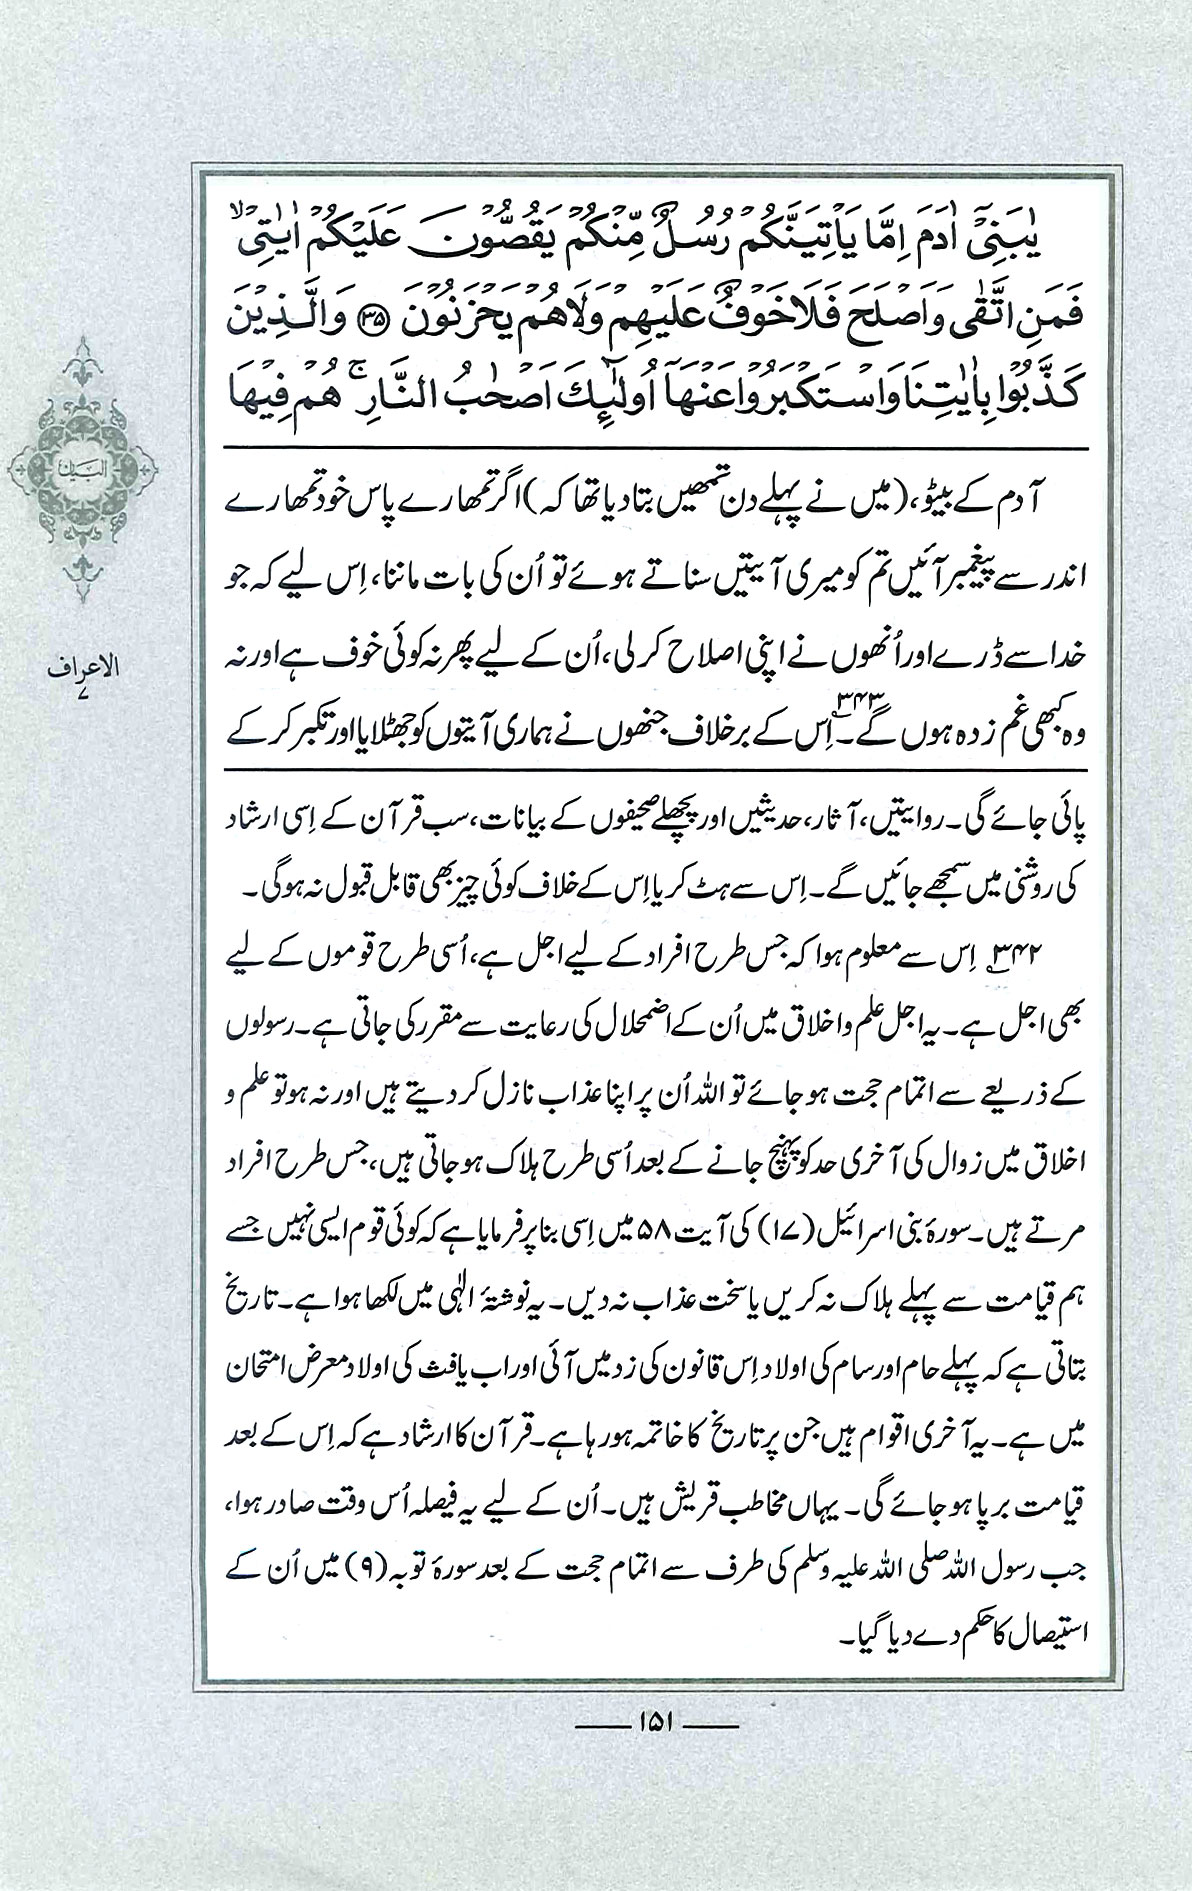 يٰبَنِيْٓ اٰدَمَ اِمَّا يَاْتِيَنَّكُمْ رُسُلٌ مِّنْكُمْ يَقُصُّوْنَ عَلَيْكُمْ اٰيٰتِيْۙ
فَمَنِ اتَّقٰى وَاَصْلَحَ فَلَا خَوْفٌ عَلَيْهِمْ وَلَا هُمْ يَحْزَنُوْنَ ﴿۳۵﴾ وَالَّذِيْنَ
كَذَّبُوْا بِاٰيٰتِنَا وَاسْتَكْبَرُوْا عَنْهَآ اُولٰٓئِكَ اَصْحٰبُ النَّارِۚ هُمْ فِيْهَا
آدم کے بیٹو، (میں نے پہلے دن تمھیں بتا دیا تھا کہ) اگر تمھارے پاس خود تمھارے
اندر سے پیغمبر آئیں تم کو میری آیتیں سناتے ہوئے تو اُن کی بات ماننا، اِس لیے کہ جو
خدا سے ڈرے اور اُنھوں نے اپنی اصلاح کر لی، اُن کے لیے پھر نہ کوئی خوف ہے اور نہ
وہ کبھی غم زدہ ہوں گے۔۳۴۳ اِس کے برخلاف جنھوں نے ہماری آیتوں کو جھٹلایا اور تکبر کر کے
پائی جائے گی۔ روایتیں، آثار، حدیثیں اور پچھلے صحیفوں کے بیانات، سب قرآن کے اِسی ارشاد
کی روشنی میں سمجھے جائیں گے۔ اِس سے ہٹ کر یا اِس کے خلاف کوئی چیز بھی قابل قبول نہ ہو گی۔
۳۴۲ اِس سے معلوم ہوا کہ جس طرح افراد کے لیے اجل ہے، اُسی طرح قوموں کے لیے
بھی اجل ہے۔ یہ اجل علم و اخلاق میں اُن کے اضمحلال کی رعایت سے مقرر کی جاتی ہے۔ رسولوں
کے ذریعے سے اتمام حجت ہو جائے تو اللہ اُن پر اپنا عذاب نازل کر دیتے ہیں اور نہ ہو تو علم و
اخلاق میں زوال کی آخری حد کو پہنچ جانے کے بعد اُسی طرح ہلاک ہو جاتی ہیں، جس طرح افراد
مرتے ہیں۔ سورۂ بنی اسرائیل (۱۷) کی آیت ۵۸ میں اِسی بنا پر فرمایا ہے کہ کوئی قوم ایسی نہیں جسے
ہم قیامت سے پہلے ہلاک نہ کریں یا سخت عذاب نہ دیں۔ یہ نوشتۂ الٰہی میں لکھا ہوا ہے۔ تاریخ
بتاتی ہے کہ پہلے حام اور سام کی اولاد اِس قانون کی زد میں آئی اور اب یافث کی اولاد معرض امتحان
میں ہے۔ یہ آخری اقوام ہیں جن پر تاریخ کا خاتمہ ہو رہا ہے۔ قرآن کا ارشاد ہے کہ اِس کے بعد
قیامت برپا ہو جائے گی۔ یہاں مخاطب قریش ہیں۔ اُن کے لیے یہ فیصلہ اُس وقت صادر ہوا،
جب رسول اللہ صلی اللہ علیہ وسلم کی طرف سے اتمام حجت کے بعد سورۂ توبہ (۹) میں اُن کے
استیصال کا حکم دے دیا گیا۔
البیان
الاعراف
۷
۱۵۱